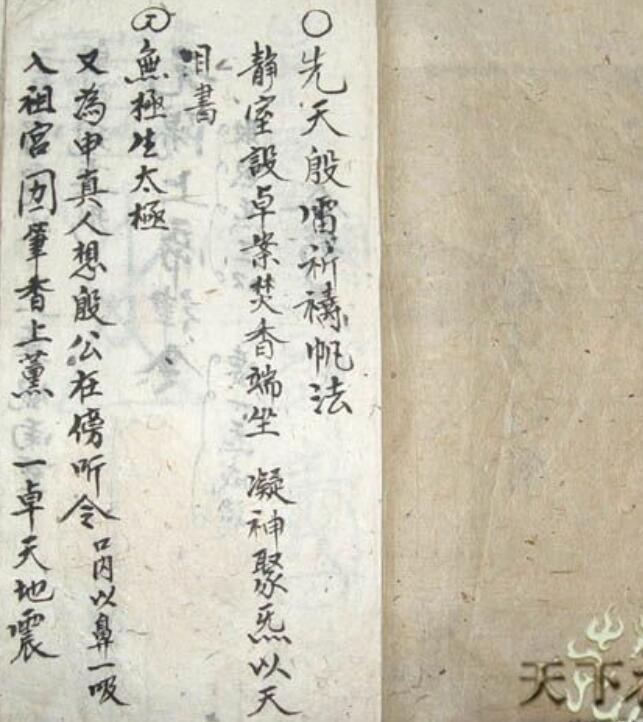 ○先天殷雷祈禱帆法
静室設卓案焚香端坐 凝神聚炁以天
書
無極生太極
又為申真人想殷公在傍听令 口内以鼻一吸
入祖宮 筆香上薰 一卓天地震
天下